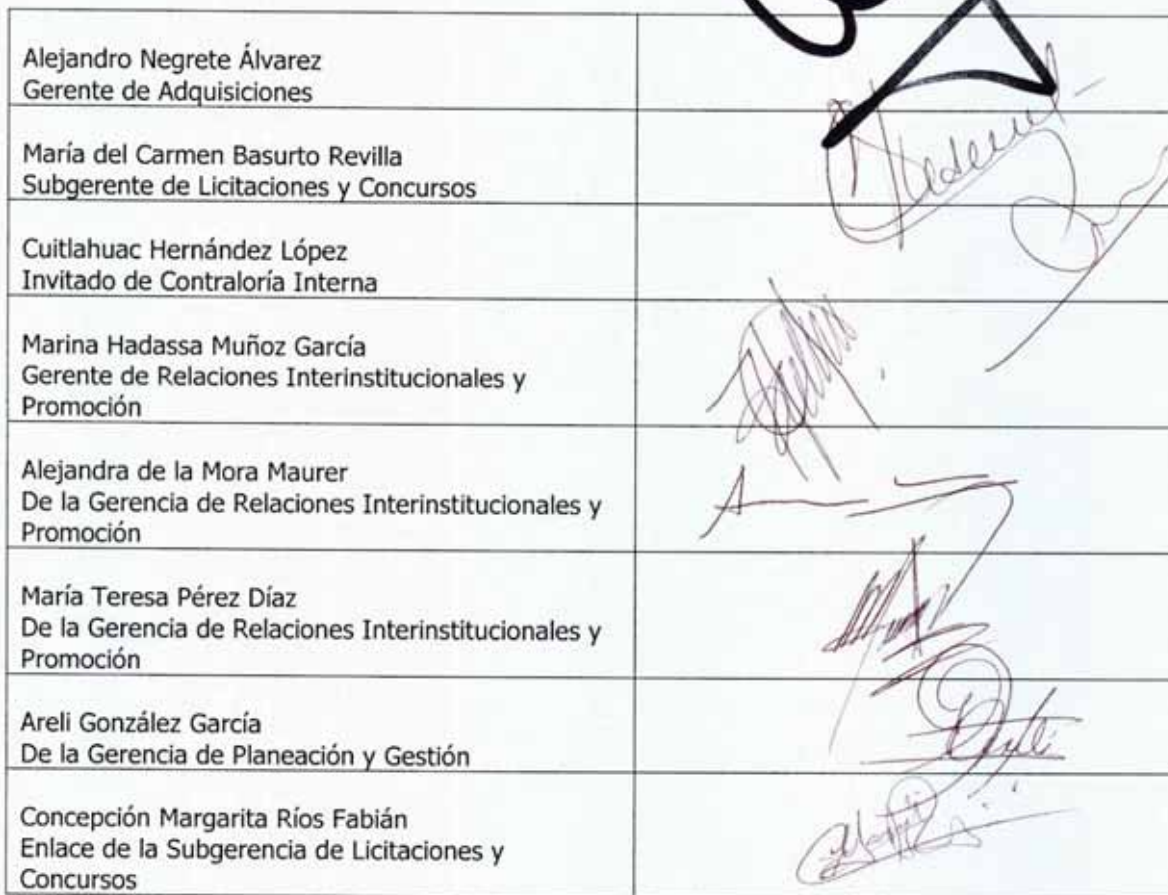 Alejandro Negrete Álvarez
Gerente de Adquisiciones
María del Carmen Basurto Revilla
Subgerente de Licitaciones y Concursos
Cuitlahuac Hernández López
Invitado de Contraloría Interna
Marina Hadassa Muñoz García
Gerente de Relaciones Interinstitucionales y
Promoción
Alejandra de la Mora Maurer
De la Gerencia de Relaciones Interinstitucionales y
Promoción
María Teresa Pérez Díaz
De la Gerencia de Relaciones Interinstitucionales y
Promoción
Areli González García
De la Gerencia de Planeación y Gestión
Concepción Margarita Ríos Fabián
Enlace de la Subgerencia de Licitaciones y
Concursos